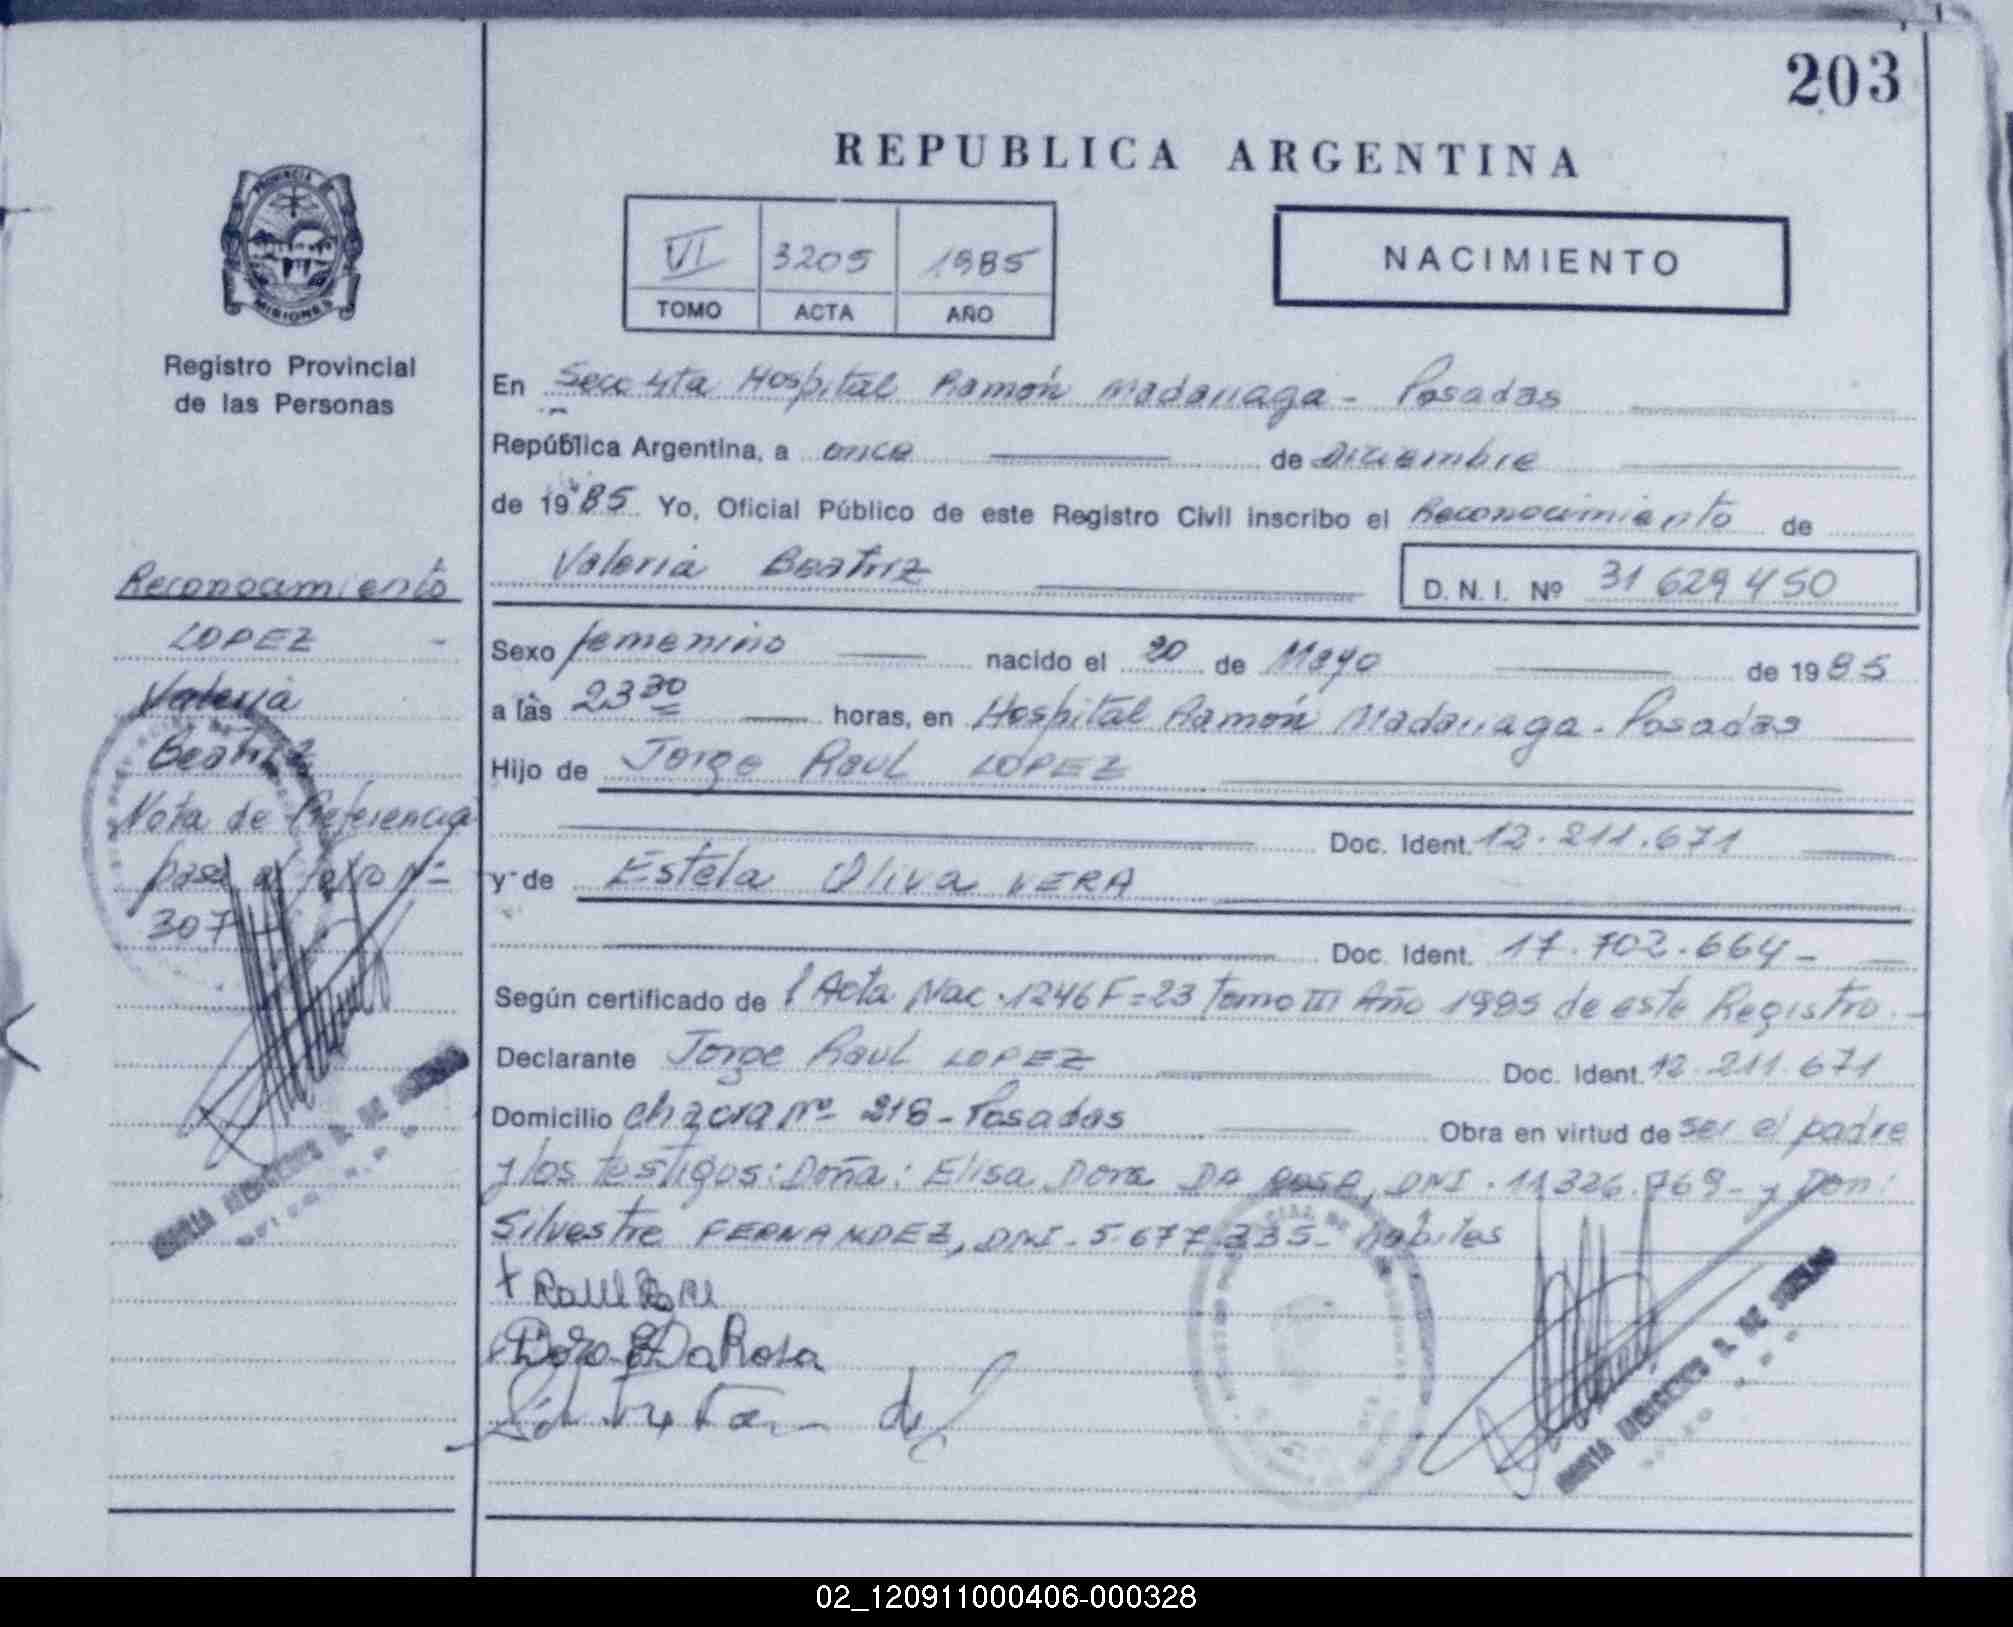 203
REPUBLICA ARGENTINA
PROVINCIA DE
MISIONES
Registro Provincial
de las Personas
VI 3205 1985
TOMO ACTA AÑO
NACIMIENTO
En Secc 4ta Hospital Ramón Madariaga - Posadas
República Argentina, a once de Diciembre
de 1985 Yo, Oficial Público de este Registro Civil inscribo el Reconocimiento de
Valeria Beatriz D. N. I. Nº 31 629 450
Sexo femenino nacido el 20 de Mayo de 1985
a las 23 30 horas, en Hospital Ramón Madariaga - Posadas
Hijo de Jorge Raul LOPEZ
Doc. Ident. 12.211.671
y de Estela Oliva VERA
Doc. Ident. 17.702.664 -
Según certificado de Acta Nac. 1246 F=23 Tomo III Año 1985 de este Registro. -
Declarante Jorge Raul LOPEZ Doc. Ident. 12.211.671
Domicilio chacra nº 218 - Posadas Obra en virtud de ser el padre
y los testigos: Doña: Elisa Dora DA ROSA, DNI. 11326.769 - y Don:
Silvestre FERNANDEZ, DNI. 5.677.335 - hábiles
Reconocimiento
LOPEZ -
Valeria
Beatriz
Nota de Referencia
pasa al folio nº
307
Da Rosa
02_120911000406-000328